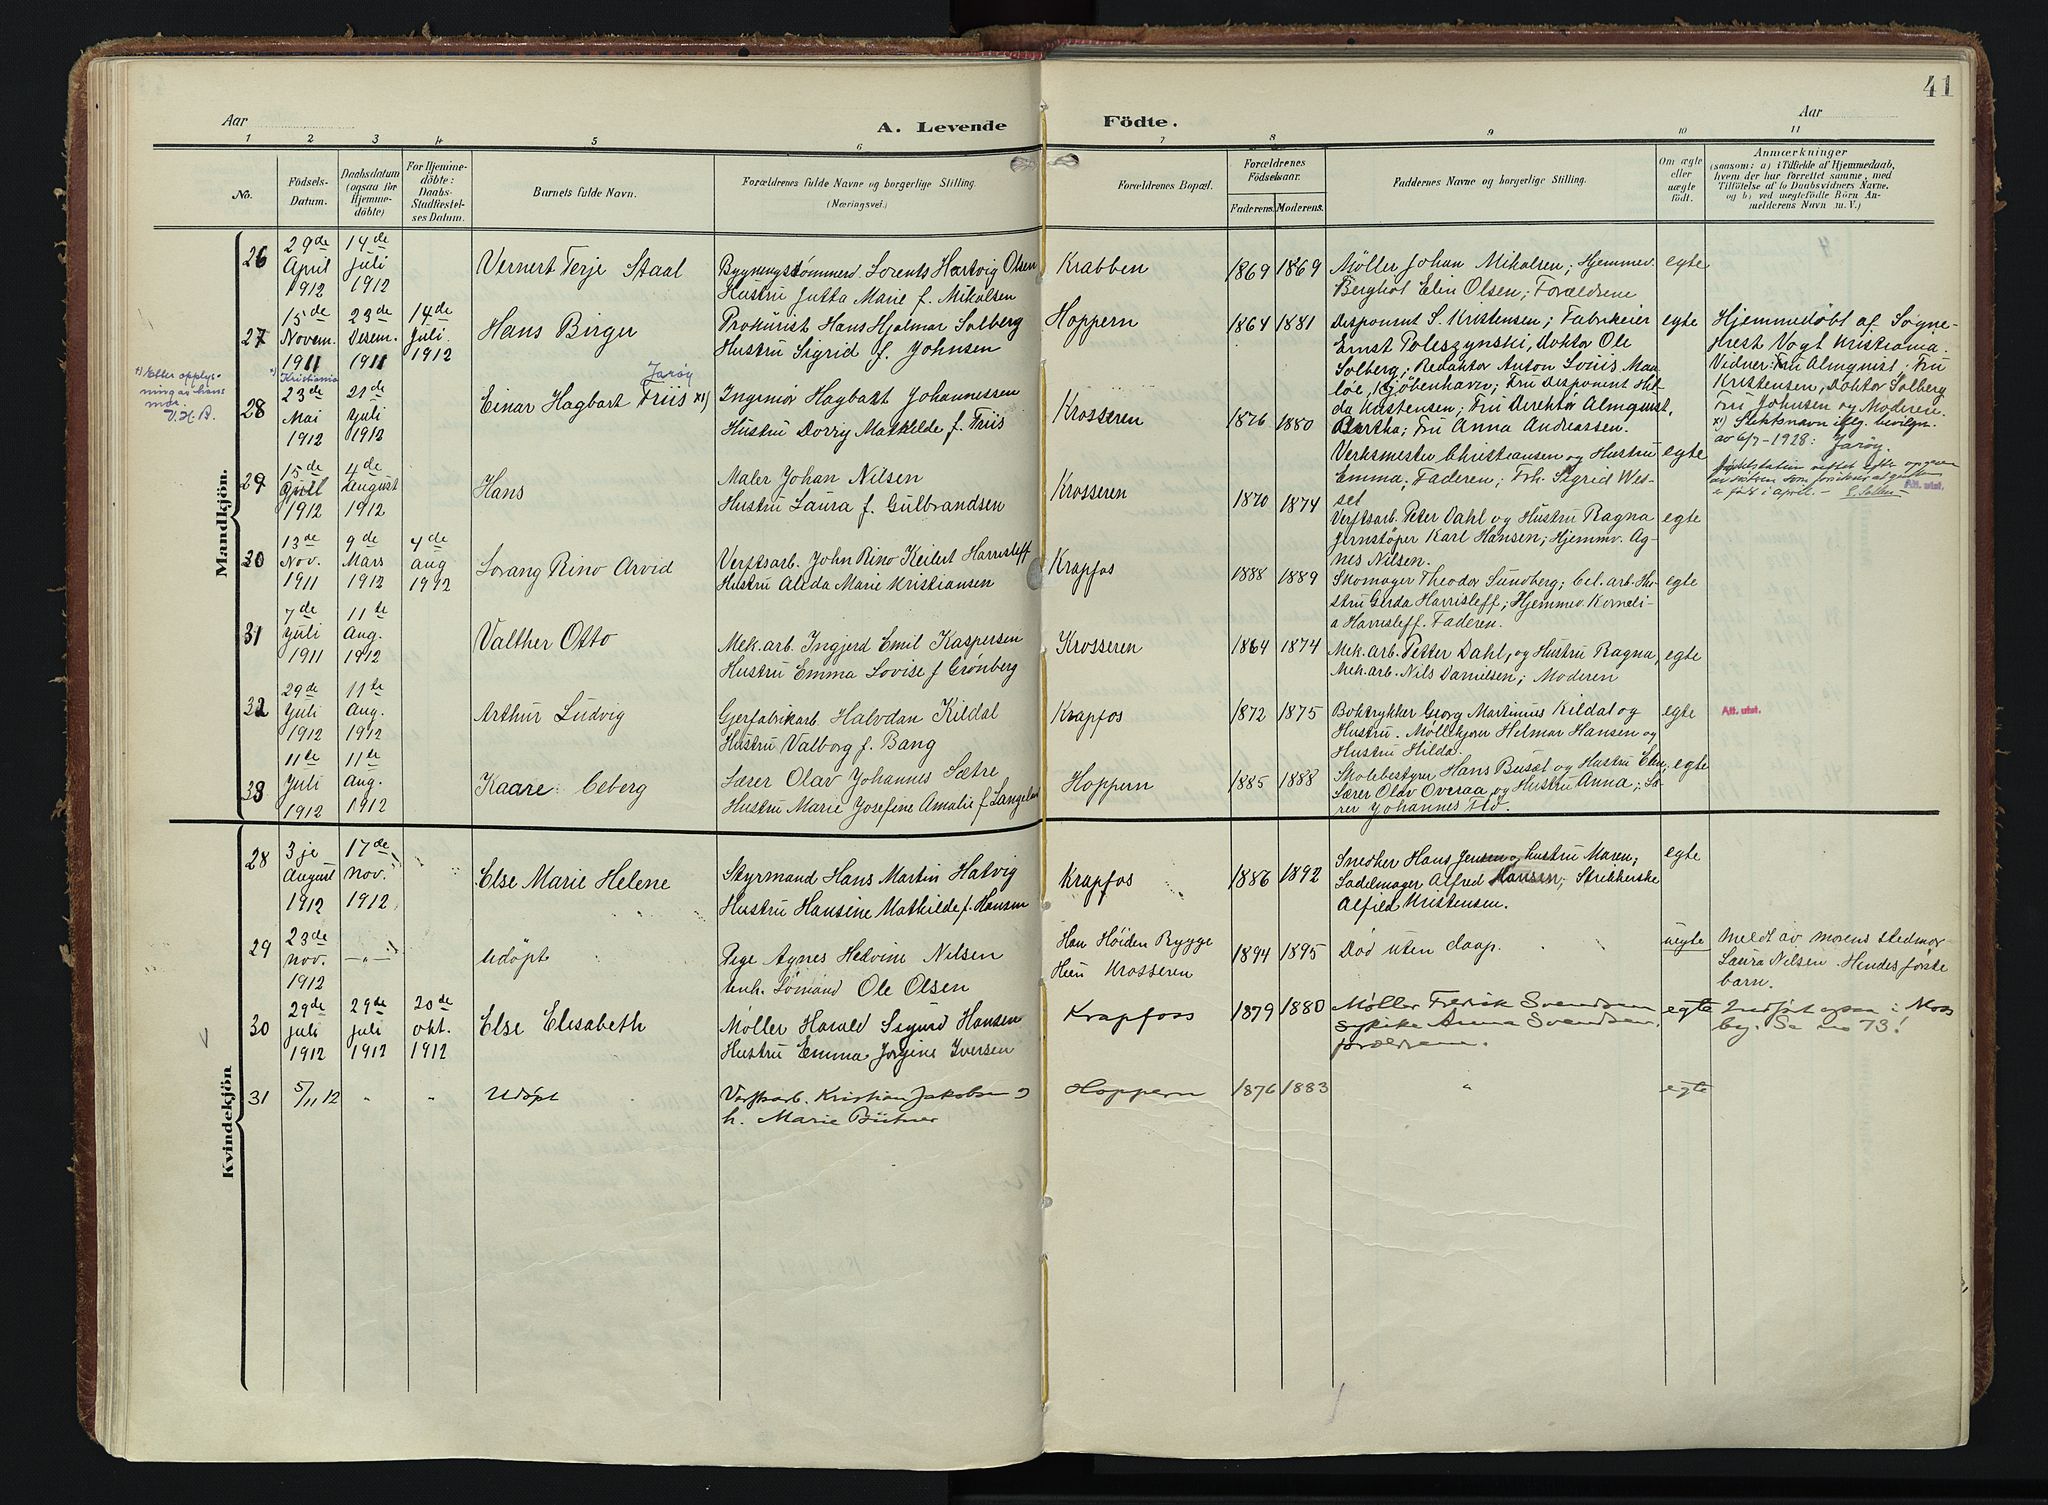 41
Aar
A. Levende
Födte.
Aar
1 2 3 4 5 6 7 8 9 10 11
No.
Födsels-
Datum.
Daabsdatum
(ogsaa for
Hjemme-
döbte)
For Hjemme-
döbte:
Daabs-
Stadfestel-
ses Datum.
Barnets fulde Navn.
Forældrenes fulde Navne og borgerlige Stilling.
(Næringsvei.)
Forældrenes Bopæl.
Forældrenes
Födselsaar.
Faderens. Moderens.
Faddernes Navne og borgerlige Stilling.
Om ægte
eller
uægte
födt.
Anmærkninger
(saasom: a) i Tilfælde af Hjemmedaab,
hvem der har forrettet samme, med
Tilföielse af to Daabsvidners Navne,
og b) ved uægtefödte Börn An-
melderens Navn m. V.)
Mandkjön.
26
29de
April
1912
14de
Juli
1912
Vernert Terje Staal
Bygningstømmerd. Lorents Hartvig Olsen
Hustru Jutta Marie f. Mikalsen
Krabben
1869 1869
Møller Johan Mikalsen; Hjemmev.
Berghot Elin Olsen; Forældrene
egte
27
15de
Novem.
1911
Kristiania
23de
Desem.
1911
14de
Juli
1912
Hans Birger
Prokurist Hans Hjalmar Solberg
Hustru Sigrid f. Johnsen
Hoppern
1864 1881
Disponent S. Kristensen; Fabrikeier
Ernst Poleszynski, Doktor Ole
Solberg; Redaktør Anton Louis Mau-
løe, Kjøbenhavn; Fru Disponent Hil-
da Kristensen; Fru Direktør Almquist,
Bertha; Fru Anna Andreassen.
egte
Hjemmedøbt af Sogne-
prest Vogt Kristiania.
Vidner: Fru Almquist; Fru
Kristensen, Doktor Solberg
Fru Johnsen og Moderen.
x) Efter opplys-
ning av hans
mor.
V.H.B.
28
23de
Mai
1912
21de
Juli
1912
Jarøy
Einar Hagbart Friis x)
Ingeniør Hagbart Johannessen
Hustru Dorry Mathilde f. Friis
Krosseren
1876 1880
Verksmester Christiansen og Hustru
Emma; Faderen; Frk. Sigrid Wes-
sel
egte
x) Slektsnavn iflg. bevilgn.
av 6/7-1928: Jarøy
29
15de
April
1912
4de
August
1912
Hans
Maler Johan Nilsen
Hustru Laura f. Gulbrandsen
Krosseren
1870 1874
Verftsarb. Peter Dahl og Hustru Ragna
Jernstøper Karl Hansen; Hjemmv. Ag-
nes Nilsen.
egte
er født i april.
Att. utst.
30
13de
Nov.
1911
9de
Mars
1912
4de
Aug
1912
Lorang Rino Arvid
Verftsarb. John Rino Keilert Harrisleff
Hustru Alida Marie Kristiansen
Krapfos
1888 1889
Skomager Theodor Sundberg; Cel. arb. Hu-
stru Gerda Harrisleff; Hjemmev. Korneli-
a Harrisleff. Faderen.
egte
31
7de
Juli
1911
11te
Aug.
1912
Valther Otto
Mek. arb. Ingjerd Emil Kaspersen
Hustru Emma Lovise f Grønberg
Krosseren
1864 1874
Mek. arb. Petter Dahl, og Hustru Ragna,
Mek. arb. Nils Danielsen; Moderen
egte
32
29de
Juli
1912
11te
Aug.
1912
Arthur Ludvig
Gjerfabrikarb. Halvdan Kildal
Hustru Valborg f. Bang
Krapfos
1872 1875
Boktrykker Georg Martinius Kildal og
Hustru. Møllekjører Hilmar Hansen og
Hustru Hilda.
egte
Att. utst.
33
11te
Juli
1912
11te
Aug.
1912
Kaare Ceberg
Lærer Olav Johannes Sætre
Hustru Marie Josefine Amalie f Langeland
Hoppern
1885 1888
Skolebestyrer Hans Busæt og Hustru Elen,
Lærer Olav Overaa og Hustru Anna; Læ-
rer Johannes Flö.
egte
Kvindekjön
28
3je
August
1912
17de
nov.
1912
Else Marie Helene
Styrmand Hans Martin Hatvig
Hustru Hansine Mathilde f. Hansen
Krapfos
1886 1892
Snedker Hans Jensen og hustru Maren;
Sadelmager Alfred Hansen; Strikkerske
Alfild Kristensen.
egte
29
23de
nov.
1912
— " —
Udøpt
Pige Agnes Hedvine Nilsen
Unk. Sømand Ole Olsen
Han Höiden Rygge
Hun Krosseren
1894 1895
Död uten daap.
uegte
Meldt av morens stedmor
Laura Nilsen. Hendes første
barn.
30
29de
juli
1912
29de
juli
1912
20de
okt.
1912
Else Elisabeth
Møller Harald Sigurd Hansen
Hustru Emma Jorgine Iversen
Krapfoss
1879 1880
Møller Fredrik Svendsen
Anna Svendsen.
forældrene.
egte
Indført ogsaa i Moss
by. Se no 73!
31
5/11 12
"
"
Udøpt
Verftsarb. Kristian Jakobsen og
h. Marie Bütner
Hoppern
1876 1883
"
egte